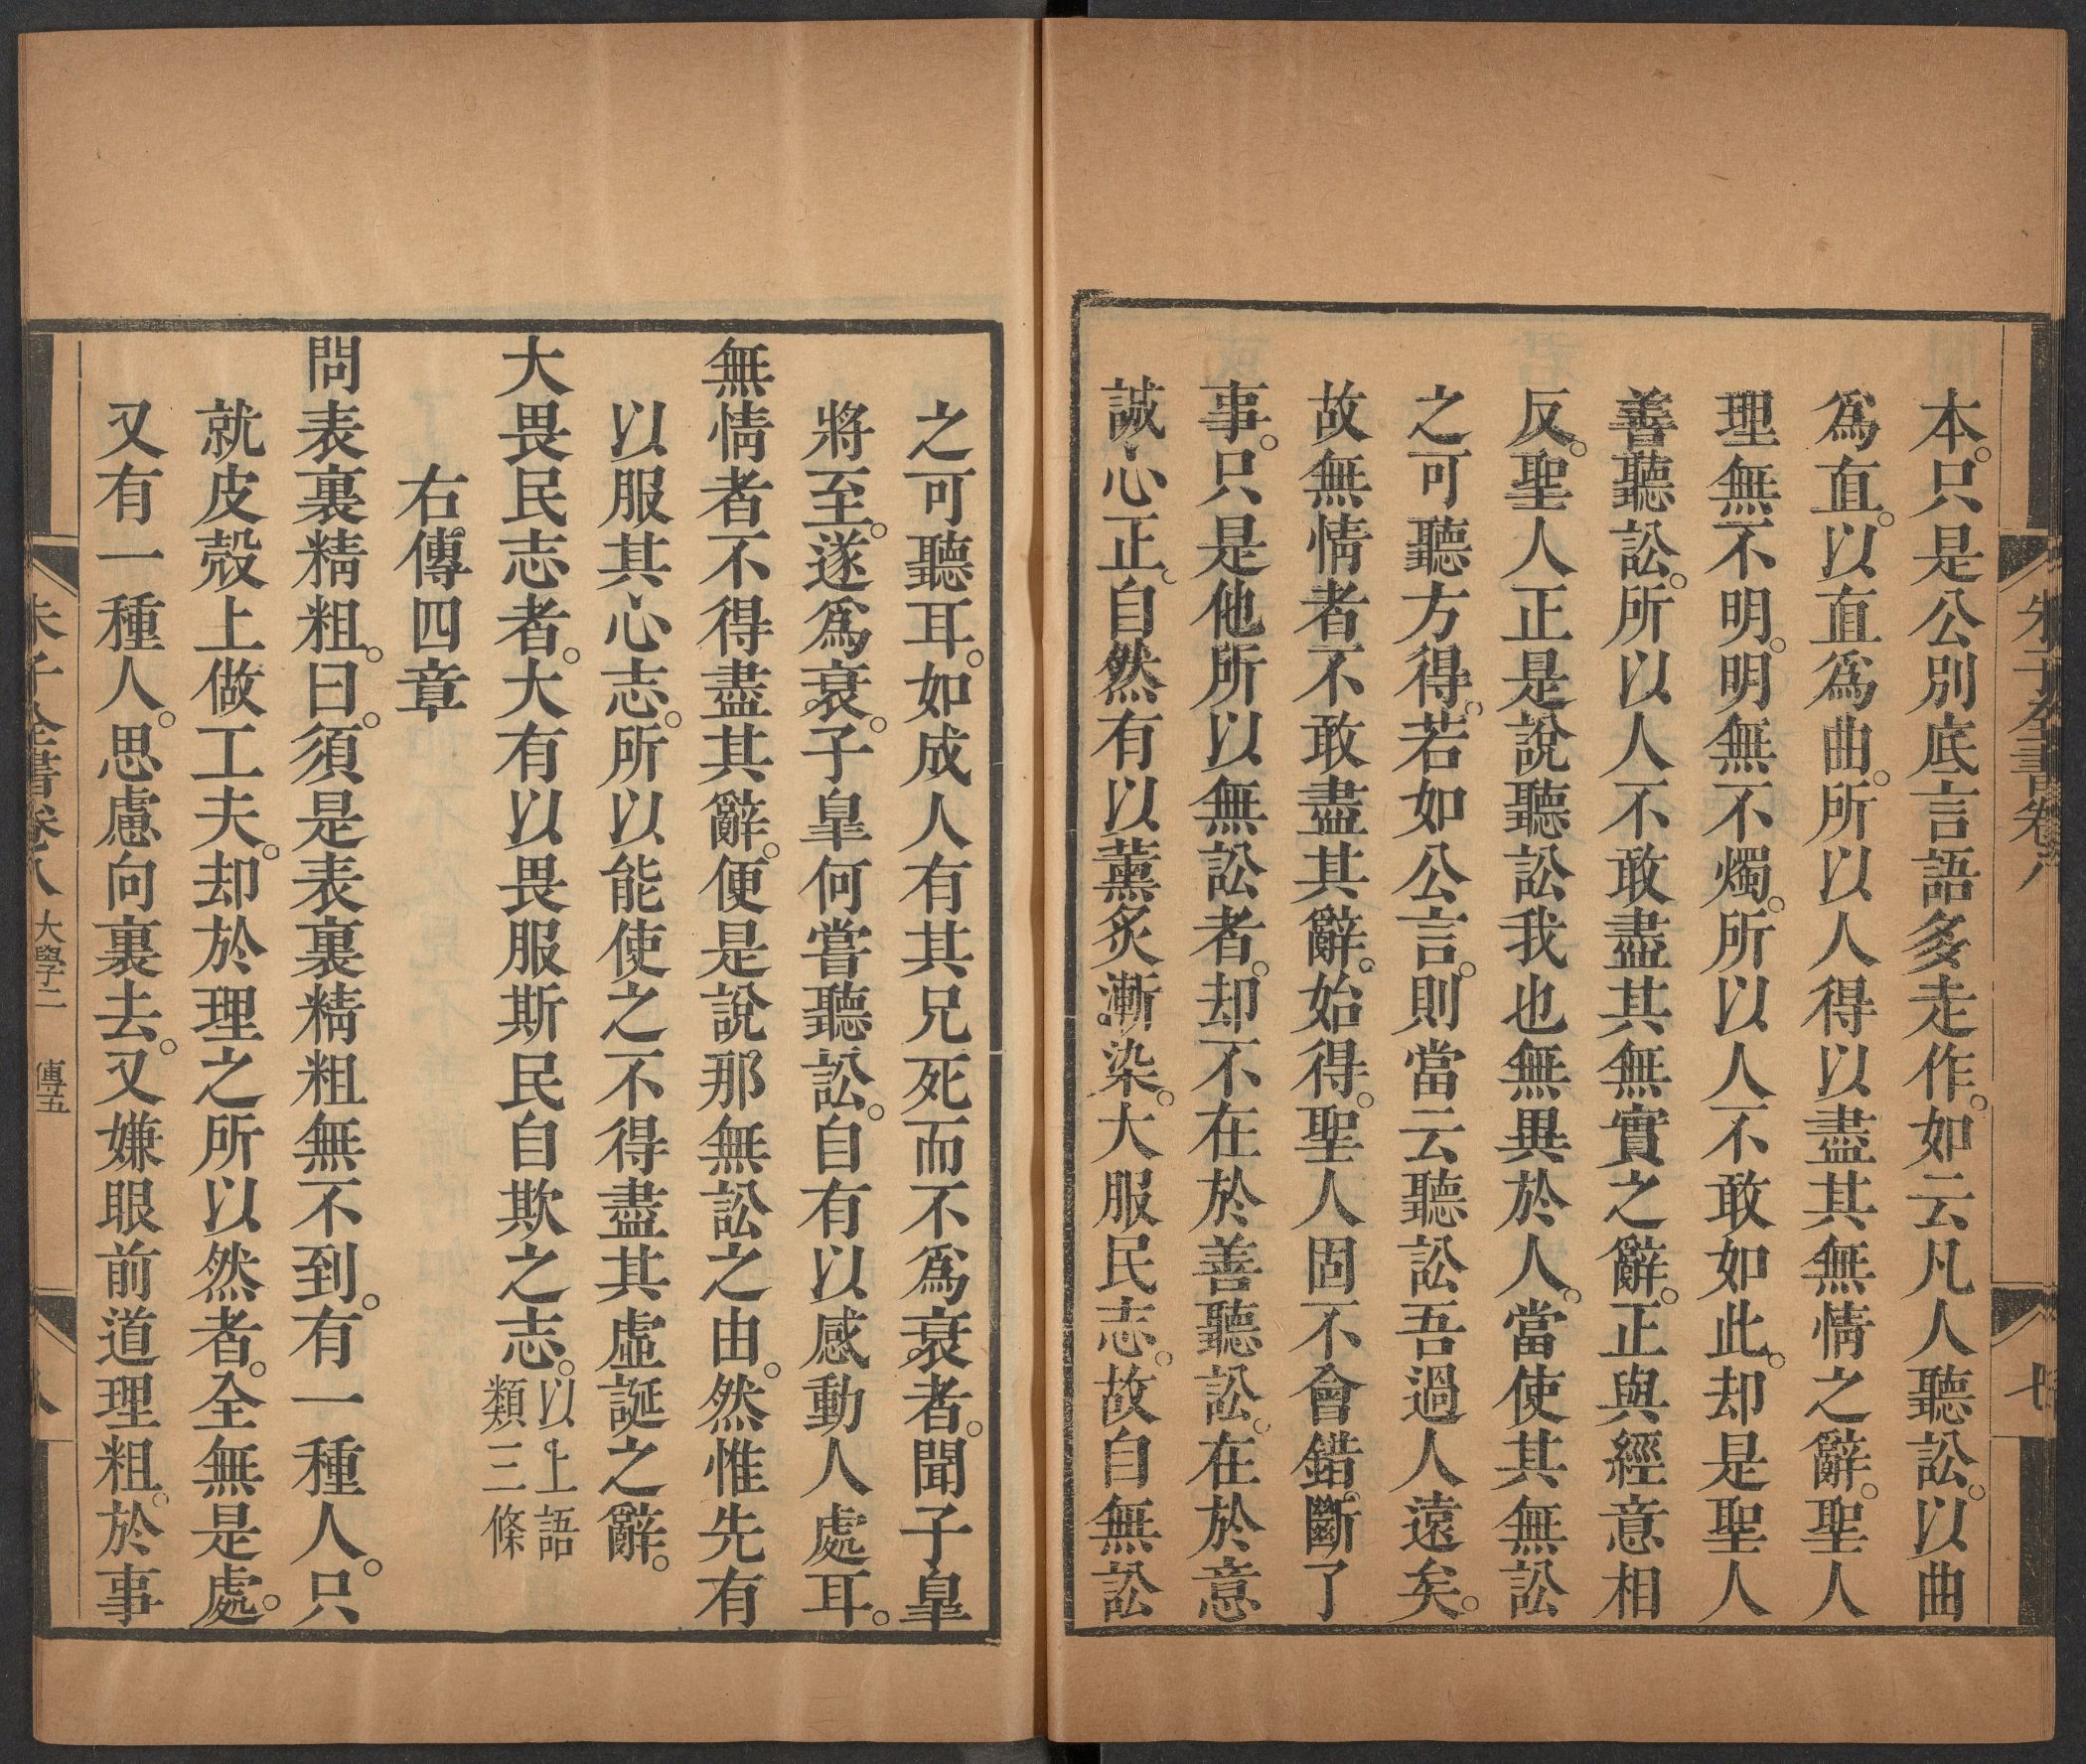 朱子全書卷八
七
本。只是公別底言語多走作。如云凡人聽訟。以曲
爲直。以直爲曲。所以人得以盡其無情之辭。聖人
理無不明。明無不燭。所以人不敢如此。却是聖人
善聽訟。所以人不敢盡其無實之辭。正與經意相
反。聖人正是說聽訟我也無異於人。當使其無訟
之可聽方得。若如公言。則當云聽訟吾過人遠矣。
故無情者不敢盡其辭。始得。聖人固不會錯斷了
事。只是他所以無訟者。却不在於善聽訟。在於意
誠心正。自然有以薰炙漸染。大服民志。故自無訟
之可聽耳。如成人有其兄死而不爲衰者。聞子皐
將至。遂爲衰。子皐何嘗聽訟。自有以感動人處耳。
無情者不得盡其辭。便是說那無訟之由。然惟先有
以服其心志。所以能使之不得盡其虛誕之辭。
大畏民志者。大有以畏服斯民自欺之志。以上語
類三條
右傳四章
問表裏精粗。曰。須是表裏精粗無不到。有一種人。只
就皮殼上做工夫。却於理之所以然者。全無是處。
又有一種人。思慮向裏去。又嫌眼前道理粗。於事
朱子全書卷八 大學二 傳五
八